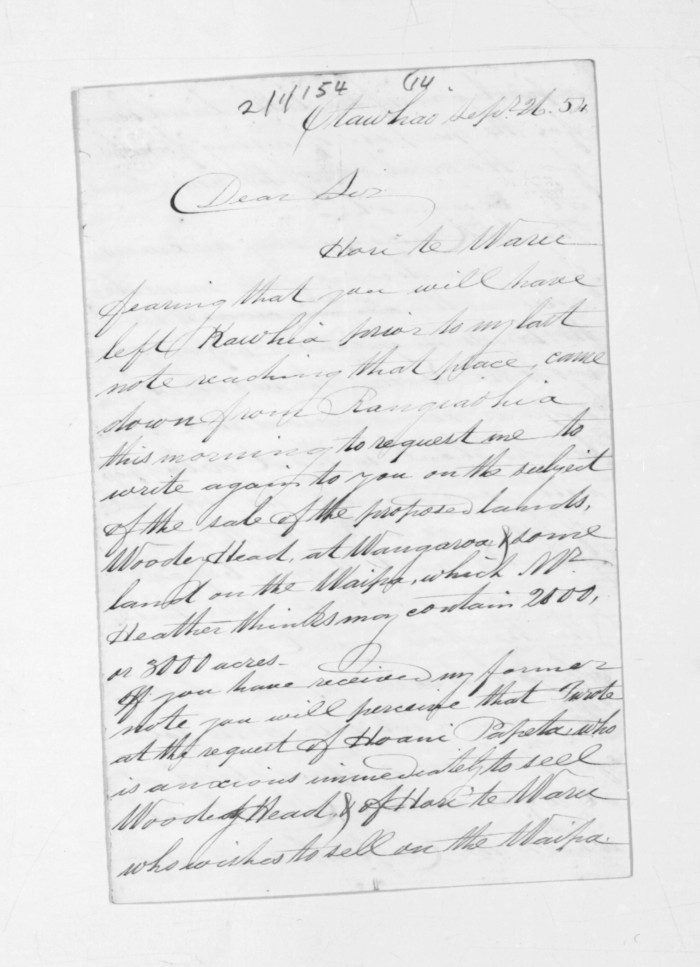 2/4/54 64.
Otawhao Sepr. 26. 54
Dear Sir
Hori te Waru
fearing that you will have
left Kawhia prior to my last
note reaching that place, came
down from Rangiaohia
this morning to request me to
write again to you on the subject
of the sale of the proposed lands,
Woody Head, at Wangaroa & some
land on the Waipa, which Mr
Heather thinks may contain 2000,
or 3000 acres.
If you have received my former
note you will perceive that I wrote
at the request of Hoani Papeta, who
is anxious immediately to sell
Woody Head, & of Hori te Waru
who wishes to sell on the Waipa.